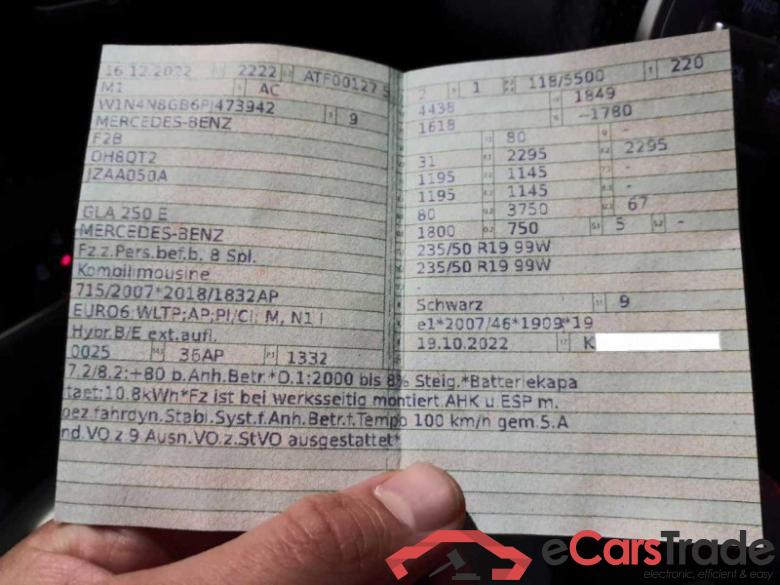 16.12.2022 2222 ATF00127 5
M1 AC
W1N4N8GB6PJ473942 9
MERCEDES-BENZ
F2B
OH8QT2
JZAA050A
GLA 250 E
MERCEDES-BENZ
Fz.z.Pers.bef.b. 8 Spl.
Kombilimousine
715/2007*2018/1832AP
EURO6;WLTP;AP;PI/CI; M, N1 I
Hybr.B/E ext.aufl.
0025 36AP 1332
2 1 118/5500 220
4438 1849
1618 -1780
80 -
31 2295 2295
1195 1145 -
1195 1145 -
80 3750 67
1800 750 5 -
235/50 R19 99W
235/50 R19 99W
-
Schwarz 9
e1*2007/46*1909*19
19.10.2022 K
7.2/8.2:+80 b.Anh.Betr.*O.1:2000 bis 8% Steig.*Batteriekapa
taet:10.8kWh*Fz ist bei werksseitig montiert.AHK u ESP m.
bez.fahrdyn.Stabi.Syst.f.Anh.Betr.f.Tempo 100 km/h gem.5.A
nd.VO.z 9 Ausn.VO.z.StVO ausgestattet*
eCarsTrade
electronic, efficient & easy